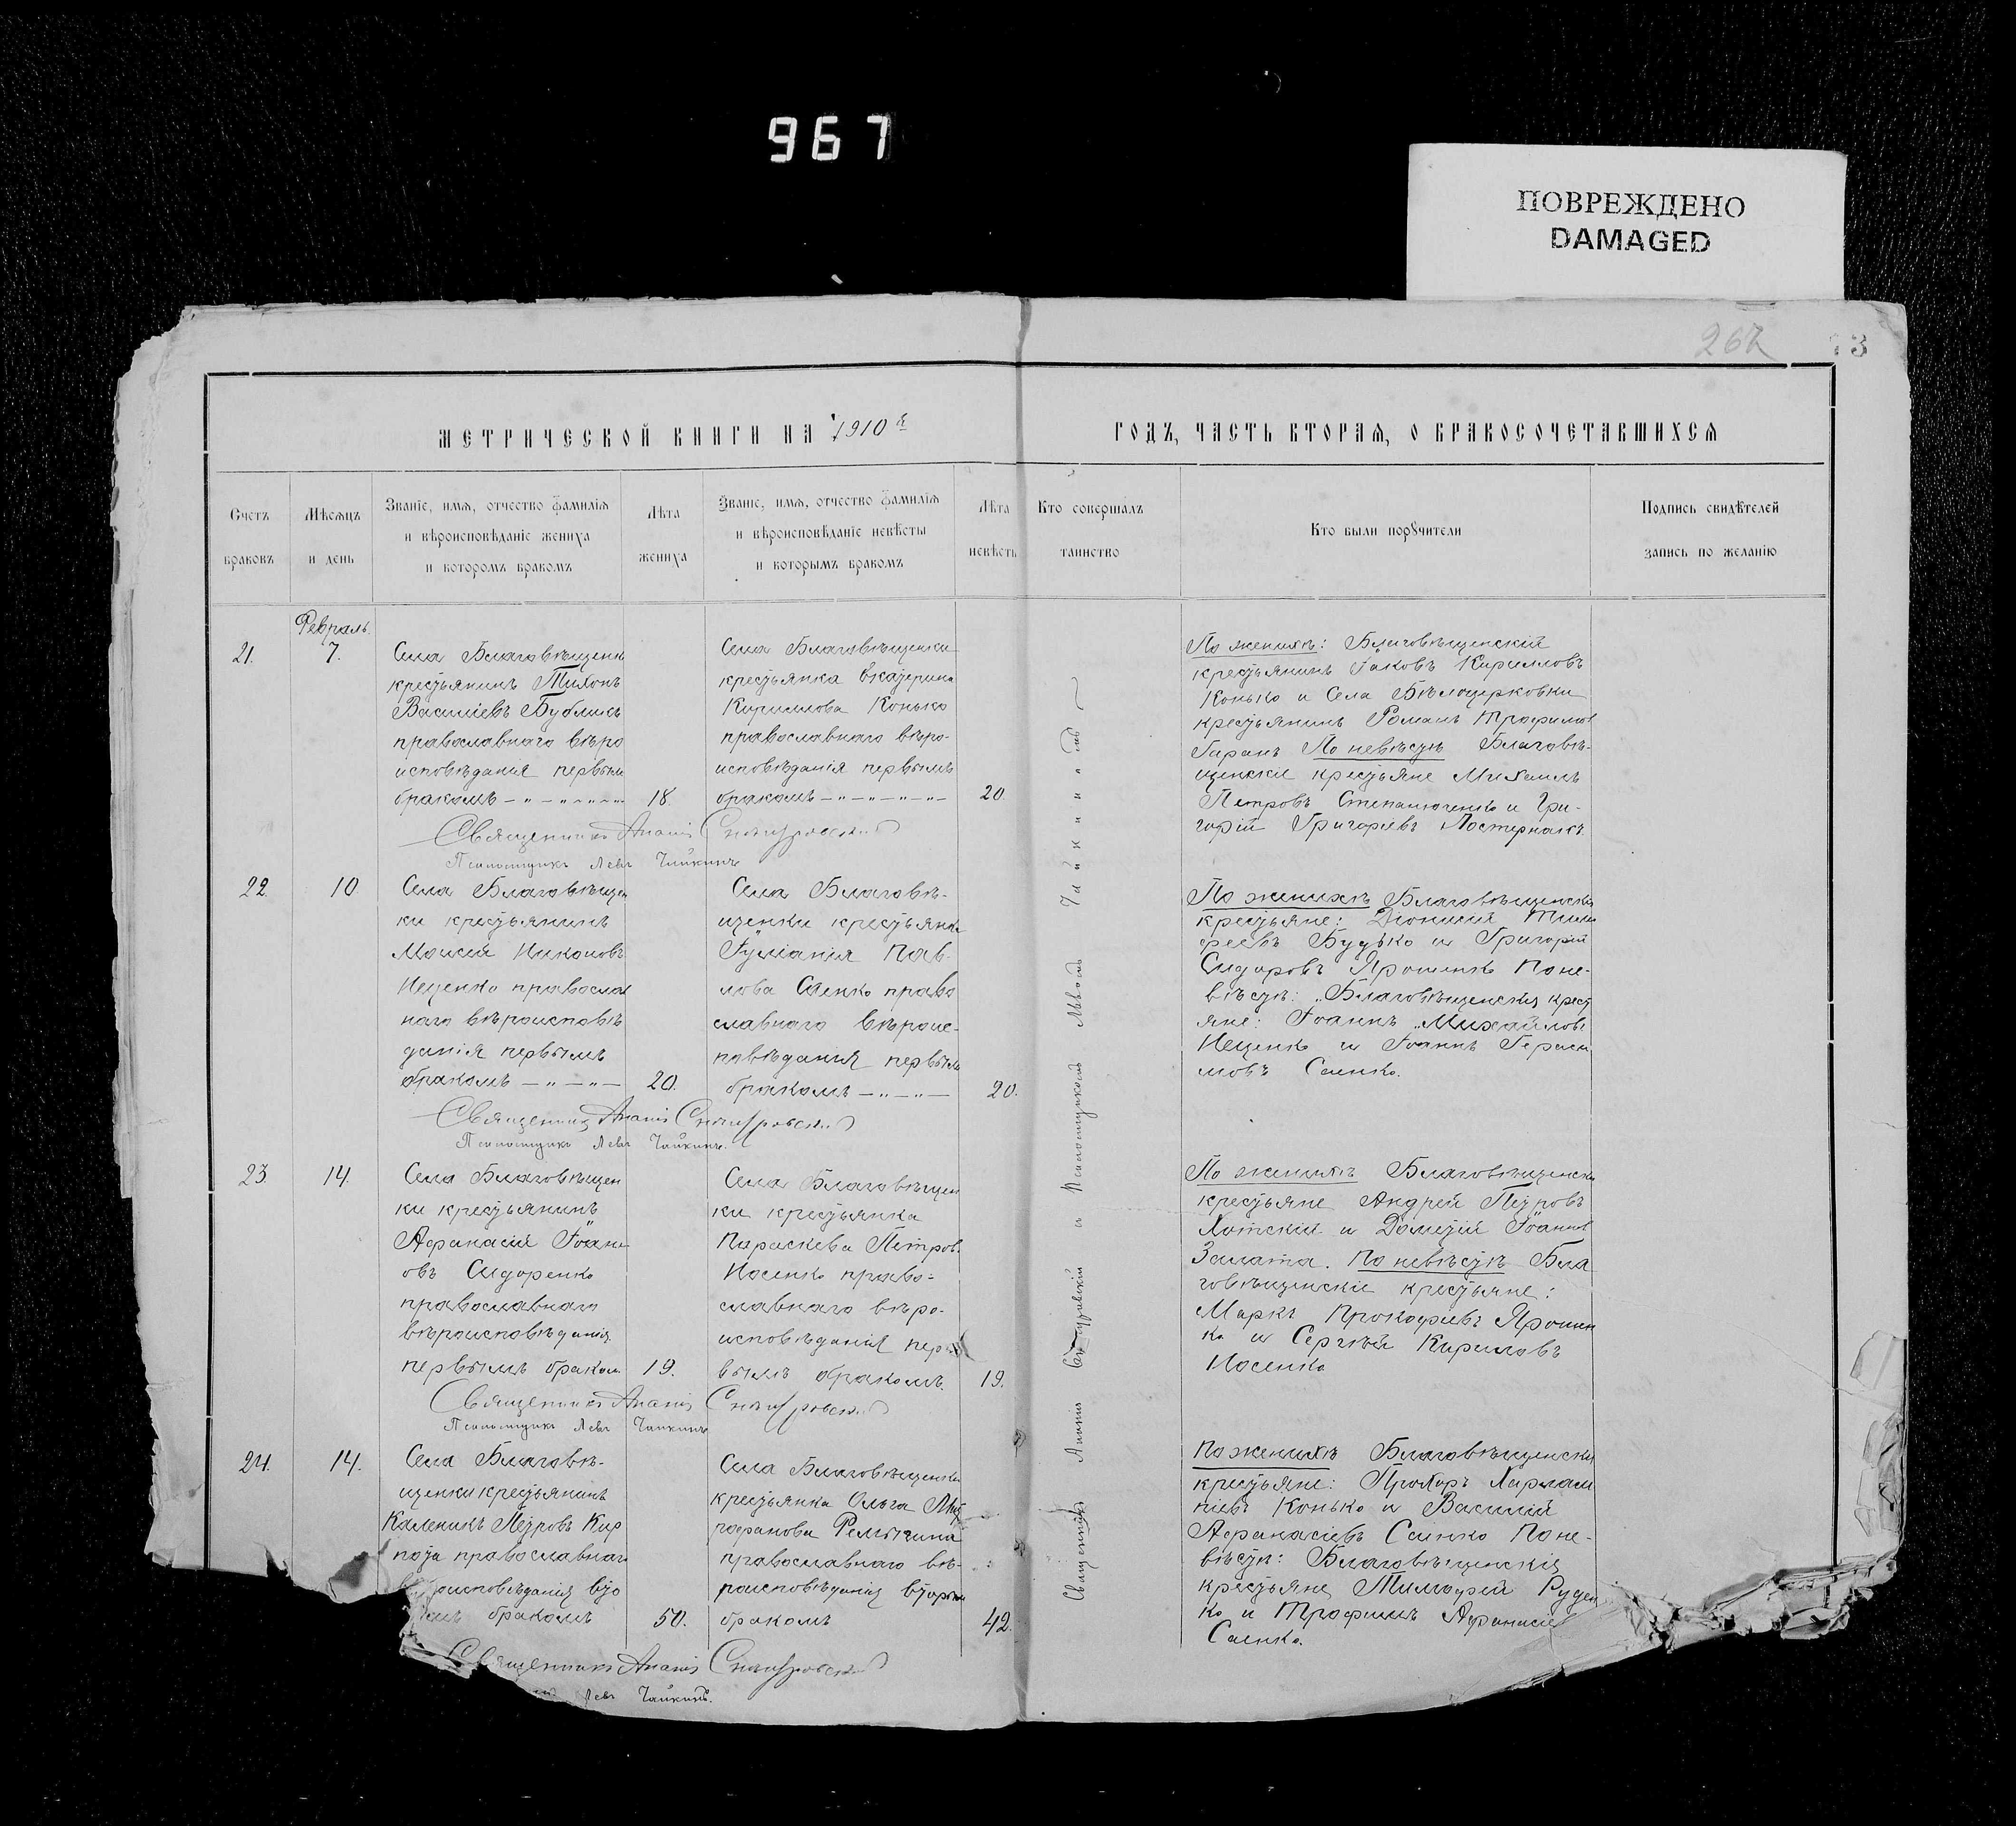 967
ПОВРЕЖДЕНО
DAMAGED
262
3
МЕТРИЧЕСКОЙ КНИГИ НА 1910 й
ГОДЪ, ЧАСТЬ ВТОРАЯ, О БРАКОСОЧЕТАВШИХСЯ
Счетъ
браковъ
Мѣсяцъ
и день
Званіе, имя, отчество фамилія
и вѣроисповѣданіе жениха
и которомъ бракомъ
Лѣта
жениха
Званіе, имя, отчество фамилія
и вѣроисповѣданіе невѣсты
и которымъ бракомъ
Лѣта
невѣсты
Кто совершалъ
таинство
Кто были поручители
Подпись свидѣтелей
запись по желанію
Февраль
21.
7.
Села Благовѣщенк
крестьянинъ Тихонъ
Василіевъ Бубликъ
православнаго вѣро
исповѣданія первым
бракомъ — " — " — " —
18.
Села Благовѣщенки
крестьянка Екатерина
Кириллова Конько
православнаго вѣро-
исповѣданія первымъ
бракомъ — " — " — " —
20.
По женихѣ: Благовѣщенскій
крестьянинъ Іаковъ Кирилловъ
Конько и Села Бѣлоцерковки
крестьянинъ Романъ Трофимов
Гаранъ По невѣстѣ Благовѣ-
щенскіе крестьяне Михаилъ
Петровъ Степанюченко и Гри-
горій Григоріевъ Постернакъ.
Священникъ Ананія
Псаломщикъ Левъ Чайкинъ
22
10
Села Благовѣщен
ки крестьянинъ
Моисей Никоновъ
Иеценко православ
наго вѣроисповѣ
данія первымъ
бракомъ — " — " —
20.
Села Благовѣ-
щенки крестьянка
Іуліанія Пав-
лова Саенко право
славнаго вѣроис-
повѣданія первым
бракомъ — " — " —
20.
По женихѣ Благовѣщенскія
крестьяне: Діонисій Тимо
феевъ Будько и Григорій
Сидоровъ Ярошенко По не-
вѣстѣ: Благовѣщенскія крест
яне: Іоаннъ Михайлов
Иеценко и Іоаннъ Гераси
мовъ Саенко.
Священникъ Ананія
Псаломщикъ Левъ Чайкинъ.
23.
14.
Села Благовѣщен
ки крестьянинъ
Афанасій Іоанн
овъ Сидоренко
православнаго
вѣроисповѣданія
первымъ браком
19.
Села Благовѣщен
ки крестьянка
Параскева Петров
Носенко право-
славнаго вѣро-
исповѣданія пер
вымъ бракомъ.
19.
По женихѣ Благовѣщенски
крестьяне Андрей Петровъ
и Дометій Іоаннов
Залата. По невѣстѣ Бла
говѣщенскіе крестьяне:
Маркъ Прокофіевъ Ярошен
ко и Сергѣй Кириловъ
Носенко
Священникъ Ананія
Псаломщикъ Левъ Чайкинъ
24.
14.
Села Благовѣ-
щенки крестьянинъ
Каленикъ Петровъ Кир
пота православнаго
роисповѣданія вто
бракомъ
50.
Села Благовѣщенки
крестьянка Ольга Мит
рофанова
православнаго вѣ-
роисповѣданія вторым
бракомъ
42.
По женихѣ Благовѣщенскія
крестьяне: Прохоръ Харлам
піевъ Конько и Василій
Афанасіевъ Саенко По не-
вѣстѣ: Благовѣщенскія
крестьяне Тимофей Руден
ко и Трофимъ Афанасіе
Саенко.
Священникъ Ананія
Левъ Чайкинъ.
Священникъ Ананія и Псаломщикомъ Львомъ Чайкинымъ